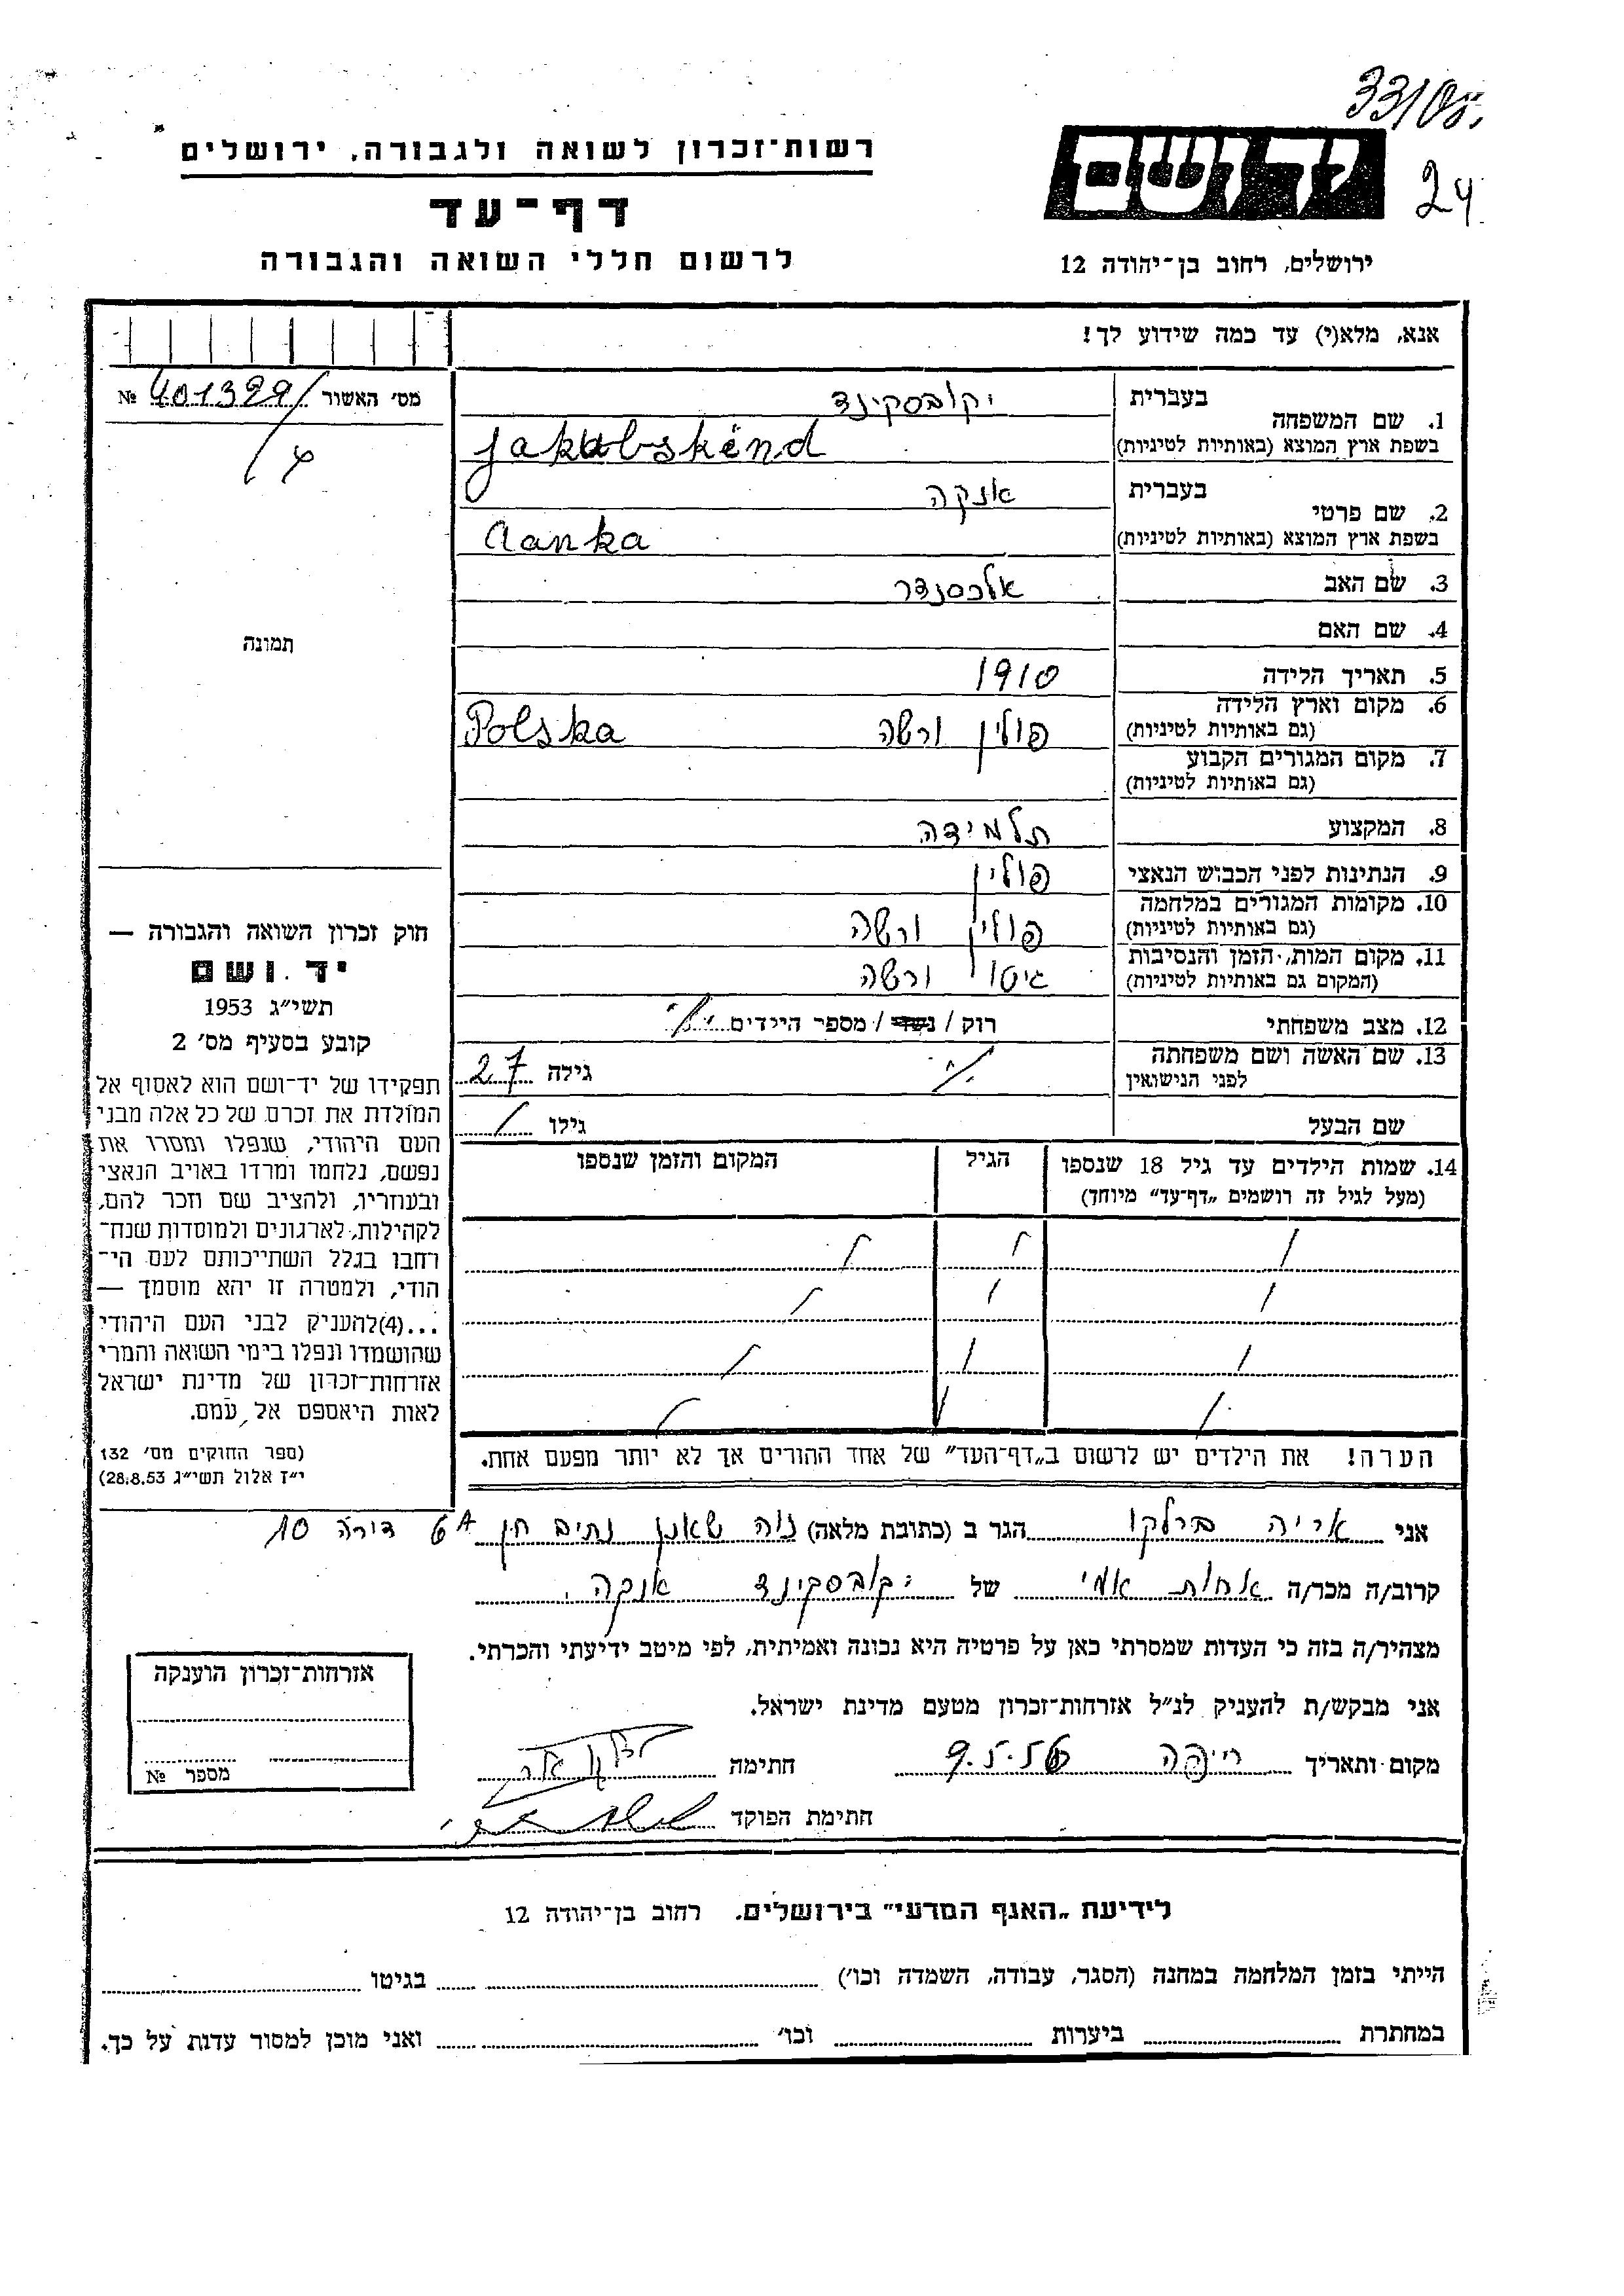 33/05.
24
רשות־זכרון לשואה ולגבורה, ירושלים
דף־עד
לרשום חללי השואה והגבורה
יד ושם
ירושלים, רחוב בן־יהודה 12
אנא, מלא(י) עד כמה שידוע לך!
מס׳ האשור 401399 №
בעברית יקובסקינד
1. שם המשפחה
בשפת ארץ המוצא (באותיות לטיניות) Jakubskënd
בעברית אנקה
2. שם פרטי
בשפת ארץ המוצא (באותיות לטיניות) Aanka
3. שם האב אלכסנדר
4. שם האם
5. תאריך הלידה 1910
6. מקום וארץ הלידה
(גם באותיות לטיניות) פולין ורשה Polska
7. מקום המגורים הקבוע
(גם באותיות לטיניות)
8. המקצוע תלמידה
9. הנתינות לפני הכבוש הנאצי פולין
10. מקומות המגורים במלחמה
(גם באותיות לטיניות) פולין ורשה
11. מקום המות, הזמן והנסיבות
(המקום גם באותיות לטיניות) גיטו ורשה
12. מצב משפחתי רוק / נשוי / מספר הילדים
13. שם האשה ושם משפחתה
לפני הנישואין גילה 27
שם הבעל גילו
14. שמות הילדים עד גיל 18 שנספו הגיל המקום והזמן שנספו
(מעל לגיל זה רושמים „דף־עד” מיוחד)
הערה! את הילדים יש לרשום ב„דף־העד” של אחד ההורים אך לא יותר מפעם אחת.
תמונה
חוק זכרון השואה והגבורה —
יד ושם
תשי״ג 1953
קובע בסעיף מס׳ 2
תפקידו של יד־ושם הוא לאסוף אל
המולדת את זכרם של כל אלה מבני
העם היהודי, שנפלו ומסרו את
נפשם, נלחמו ומרדו באויב הנאצי
ובעוזריו, ולהציב שם וזכר להם,
לקהילות, לארגונים ולמוסדות שנח־
רבו בגלל השתייכותם לעם הי־
הודי, ולמטרה זו יהא מוסמך —
...(4) להעניק לבני העם היהודי
שהושמדו ונפלו בימי השואה והמרי
אזרחות־זכרון של מדינת ישראל
לאות היאספם אל עמם.
(ספר החוקים מס׳ 132
י״ז אלול תשי״ג 28.8.53)
אני אריה בילקו הגר ב (כתובת מלאה) נוה שאנן נתיב חן 6A דירה 10
קרוב/ה מכר/ה אחות אמי של יקובסקינד אנקה.
מצהיר/ה בזה כי העדות שמסרתי כאן על פרטיה היא נכונה ואמיתית, לפי מיטב ידיעתי והכרתי.
אני מבקש/ת להעניק לנ״ל אזרחות־זכרון מטעם מדינת ישראל.
מקום ותאריך חיפה 9.5.56 חתימה
חתימת הפוקד
אזרחות־זכרון הוענקה
מספר №
לידיעת „האגף המדעי” בירושלים. רחוב בן־יהודה 12
הייתי בזמן המלחמה במחנה (הסגר, עבודה, השמדה וכו׳) בגיטו
במחתרת ביערות וכו׳ ואני מוכן למסור עדות על כך.